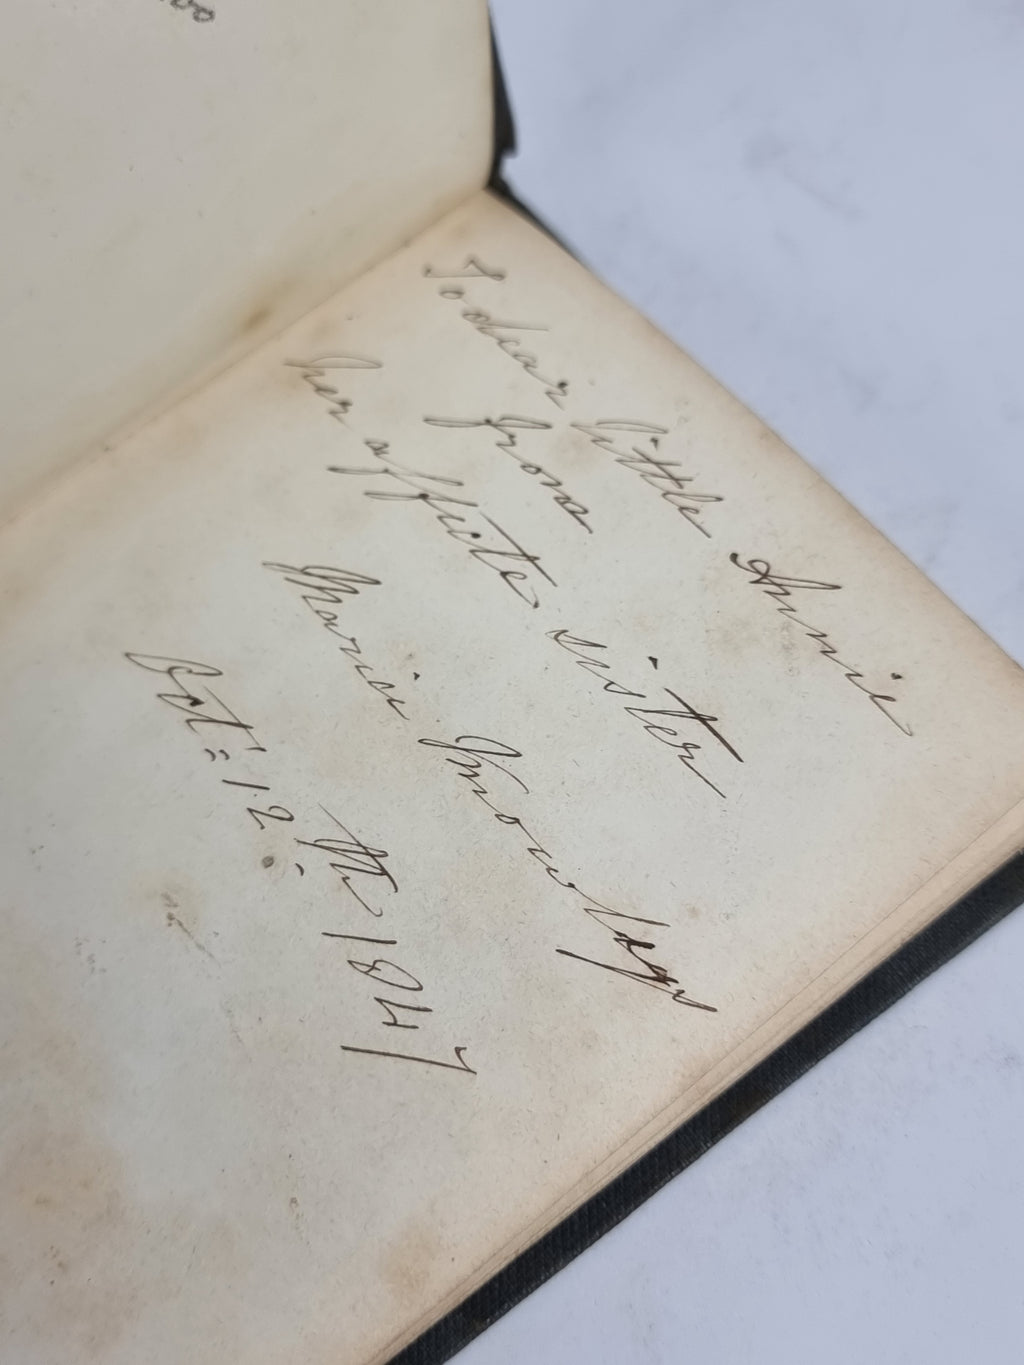 To dear little Annie
from
her affecte sister
Maria Knowlys
Oct= 12th 1847